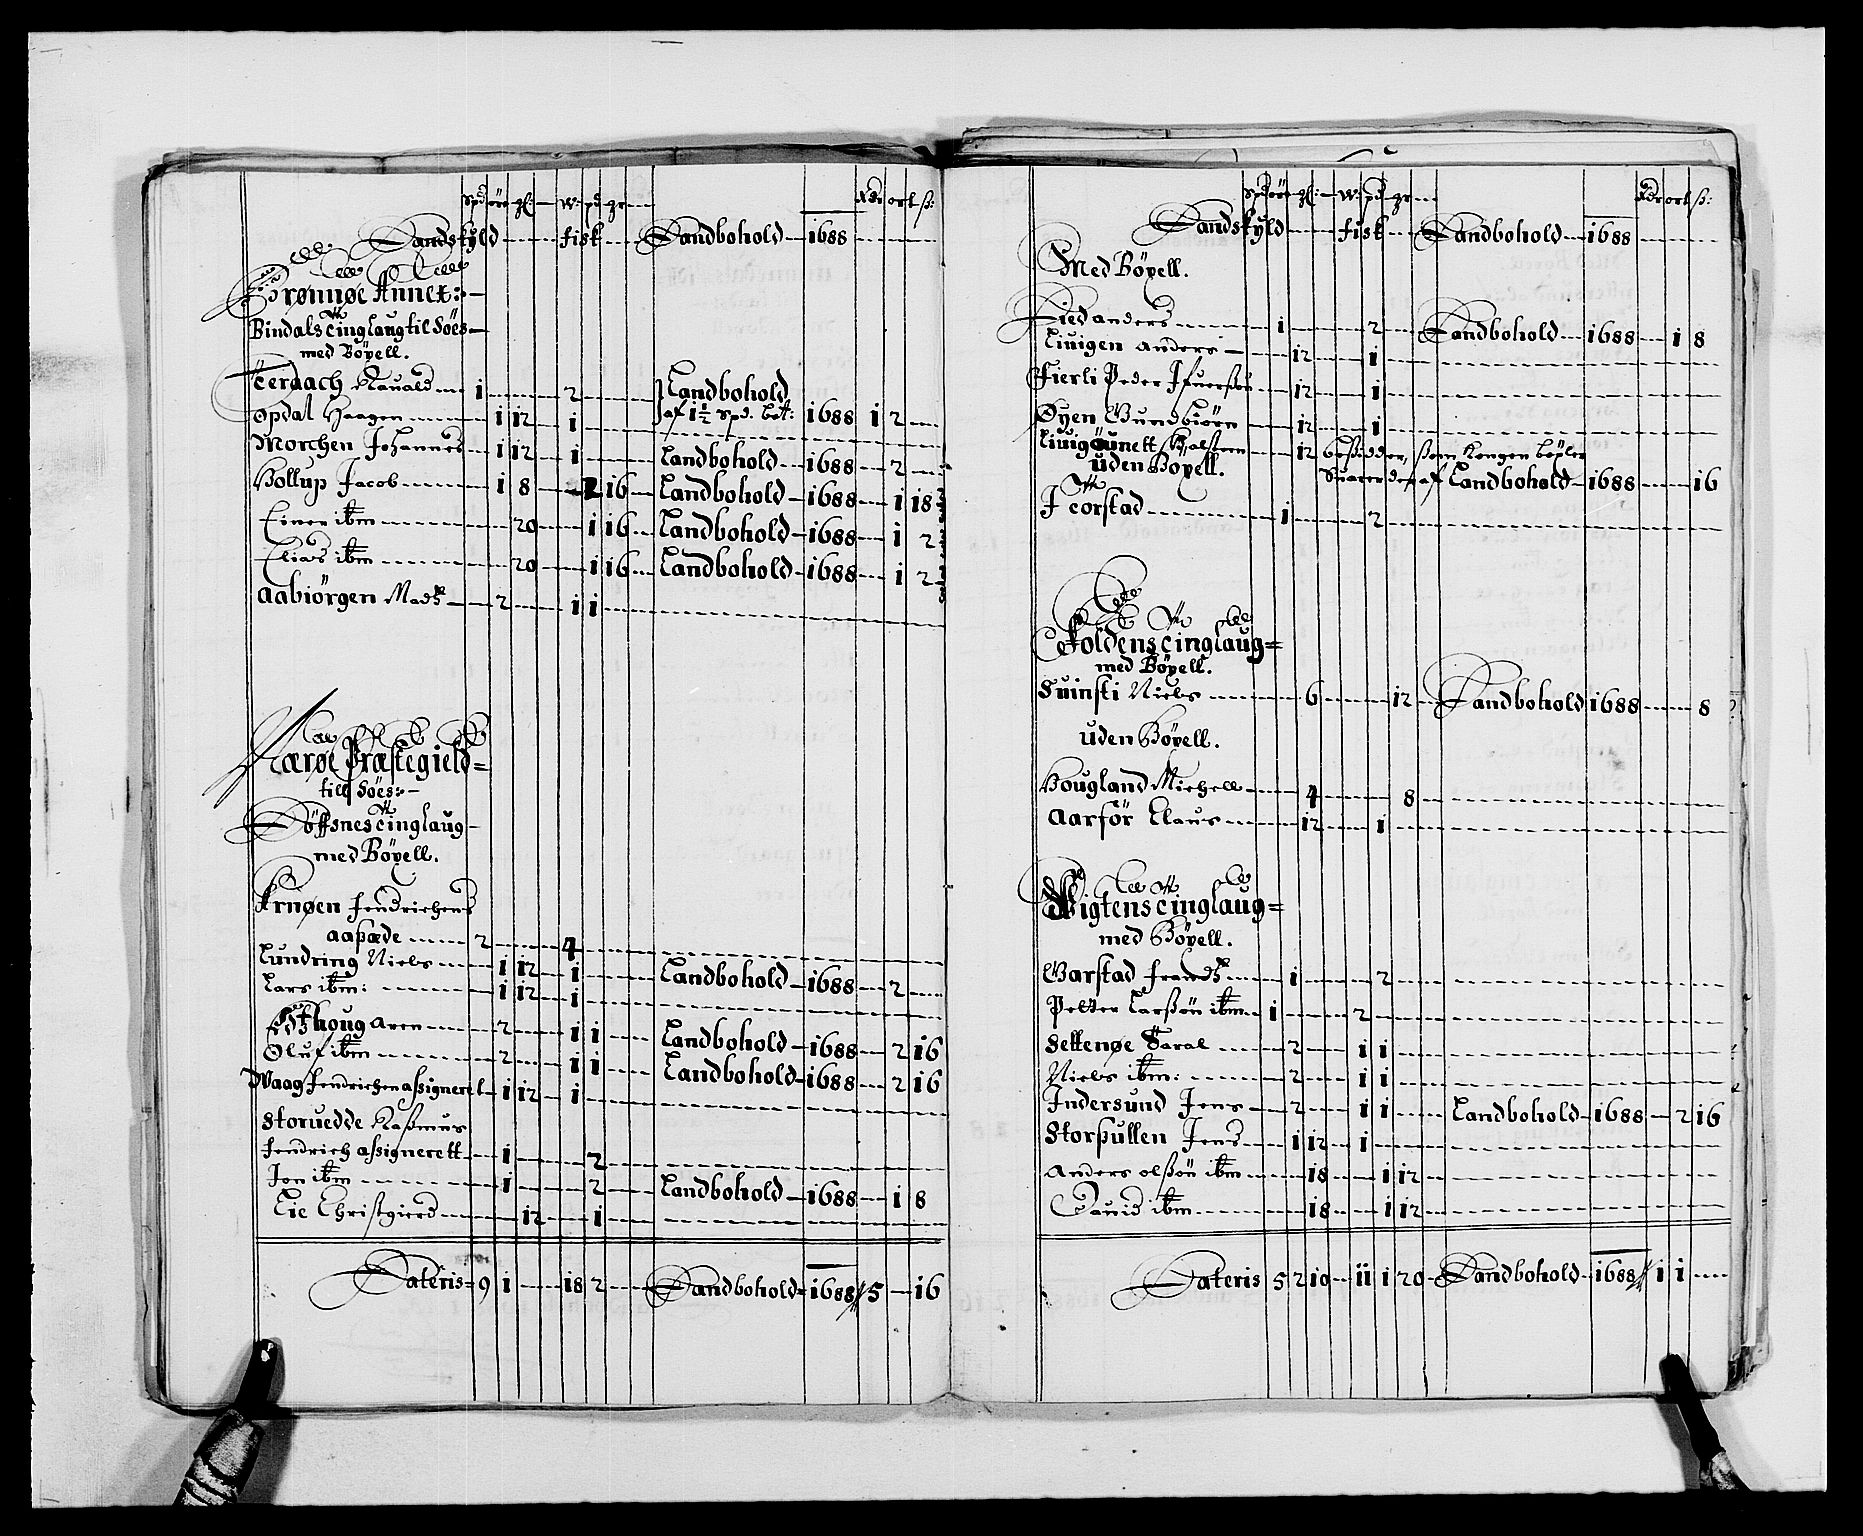 Spd ört gl: — W: pd gr — Rdr ort ß:
Landskyld — fisk — Landbohold — 1688
Brønnøe Annex:
Bindals tinglaug til Söes
med Böxell.
Terdach Hauald — 1 — 2 — Landbohold
Opdal Haagen — 1 12 — 1 — af 1½ Spd. bet: 1688 1 2
Morchen Johannes — 1 12 — 1 — Landbohold — 1688 — 2
Hollup Jacob — 1 8 — 1 16 — Landbohold — 1688 — 1 18
Einer ibm — 20 — 1 16 — Landbohold — 1688 — 1 2
Elias ibm — 20 — 1 16 — Landbohold — 1688 — 1 2
Aabiörgen Madß — 2 — 1 1
Nærøe Præstegield
till Söes
Söffsnes tinglaug
med Böxell.
Arnøen Hendrichens
aaßæde — 2 — 4
Lundring Niels — 1 12 — 1 — Landbohold — 1688 — 2
Lars ibm: — 1 12 — 1
houg Aren — 2 — 1 1 — Landbohold — 1688 — 2 16
Oluf ibm — 2 — 1 1 — Landbohold — 1688 — 2 16
Waag Hendrichen assigneret — 1 12 — 1
Storuedde Raßmus
Hendrich assignerett — 1 — 2
Jon ibm — 1 — 2 — Landbohold — 1688 — 1 8
Lie Christgierd — 12 — 1
Lateris 9 1 — 18 2 — Landbohold 1688 // 5 — 16
Spd ört gl: — W: pd gr — Rdr ort ß:
Landskyld — fisk — Landbohold — 1688
Med Böxell.
Lied anders — 1 — 2 — Landbohold — 1688 — 1 8
Liuigen anders — 12 — 1
Fierli Peder Ifuerßøn — 12 — 1
Øyen Gundbiörn — 12 — 1
— 12 besidder, som Kongen böxler
uden Boxell. Suarer der af Landbohold — 1688 — 16
Horstad — 1 — 2
Foldens tinglaug
med Böxell.
Suinsti Niels — 6 — 12 — Landbohold 1688 — 8
uden Böxell.
Hougland Michell — 4 — 8
Aarför Claus — 12 — 1
Wigtens tinglaug
med Böxell.
Garstad frandß — 1 — 2
Petter Larßön ibm — 1 — 2
Settenøe Saral — 2 — 1 1
Niels ibm: — 2 — 1 1
Indersund Jens — 2 — 1 1 — Landbohold — 1688 — 2 16
Storßullen Jens — 1 12 — 1
Anders olßön ibm — 18 — 1 12
Dauid ibm — 18 — 1 12
Lateris 5 2 10 — 11 1 20 — Landbohold — 1688 // 1 1